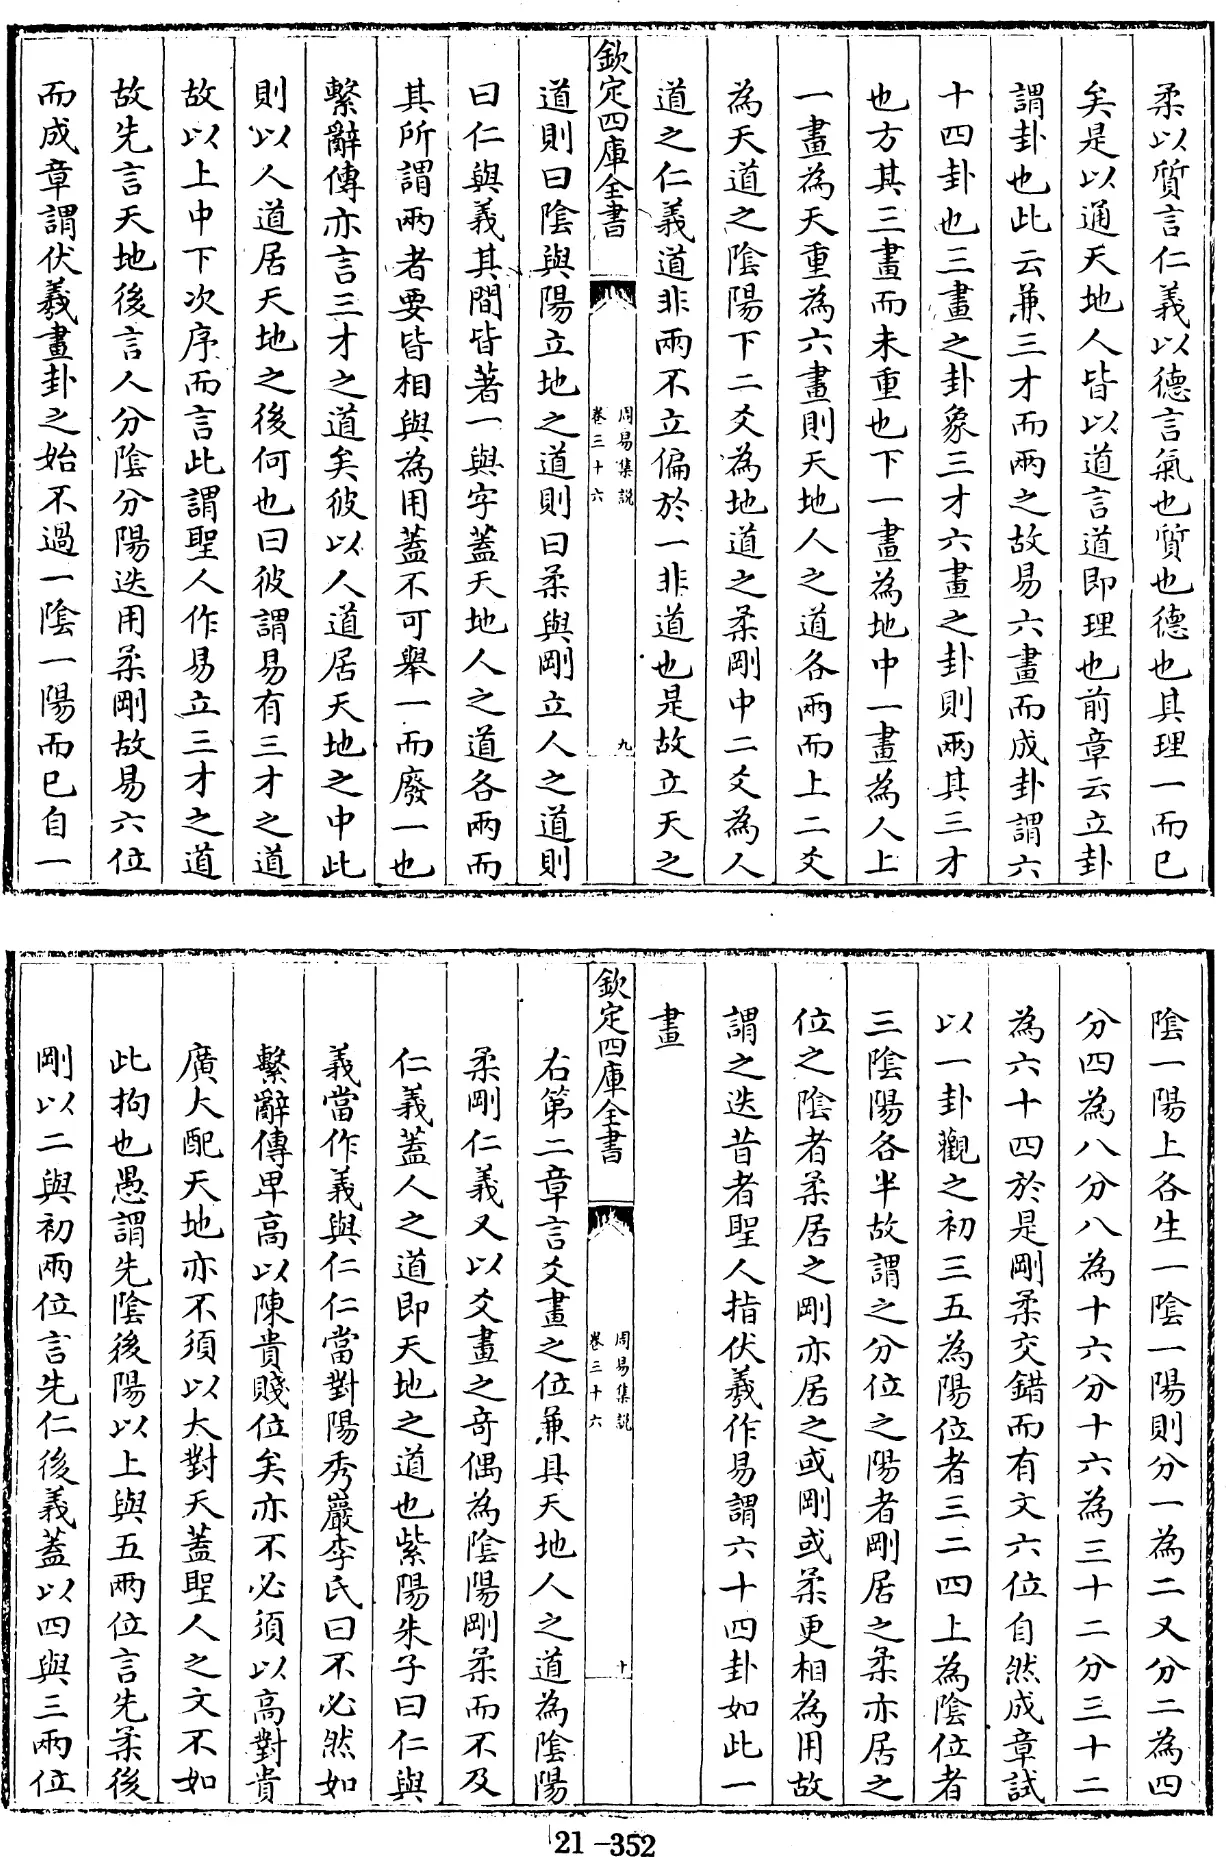 柔以質言仁義以德言氣也質也德也其理一而已
矣是以通天地人皆以道言道即理也前章云立卦
謂卦也此云兼三才而兩之故易六畫而成卦謂六
十四卦也三畫之卦象三才六畫之卦則兩其三才
也方其三畫而未重也下一畫為地中一畫為人上
一畫為天重為六畫則天地人之道各兩而上二爻
為天道之陰陽下二爻為地道之柔剛中二爻為人
道之仁義道非兩不立偏於一非道也是故立天之
欽定四庫全書
周易集說
卷三十六
九
道則曰陰與陽立地之道則曰柔與剛立人之道則
曰仁與義其間皆著一與字蓋天地人之道各兩而
其所謂兩者要皆相與為用蓋不可舉一而廢一也
繫辭傳亦言三才之道矣彼以人道居天地之中此
則以人道居天地之後何也曰彼謂易有三才之道
故以上中下次序而言此謂聖人作易立三才之道
故先言天地後言人分陰分陽迭用柔剛故易六位
而成章謂伏羲畫卦之始不過一陰一陽而已自一
陰一陽上各生一陰一陽則分一為二又分二為四
分四為八分八為十六分十六為三十二分三十二
為六十四於是剛柔交錯而有文六位自然成章試
以一卦觀之初三五為陽位者三二四上為陰位者
三陰陽各半故謂之分位之陽者剛居之柔亦居之
位之陰者柔居之剛亦居之或剛或柔更相為用故
謂之迭昔者聖人指伏羲作易謂六十四卦如此一
畫
欽定四庫全書
周易集說
卷三十六
十
右第二章言爻畫之位兼具天地人之道為陰陽
柔剛仁義又以爻畫之奇偶為陰陽剛柔而不及
仁義蓋人之道即天地之道也紫陽朱子曰仁與
義當作義與仁仁當對陽秀巖李氏曰不必然如
繫辭傳卑高以陳貴賤位矣亦不必須以高對貴
廣大配天地亦不須以大對天蓋聖人之文不如
此拘也愚謂先陰後陽以上與五兩位言先柔後
剛以二與初兩位言先仁後義蓋以四與三兩位
21-352